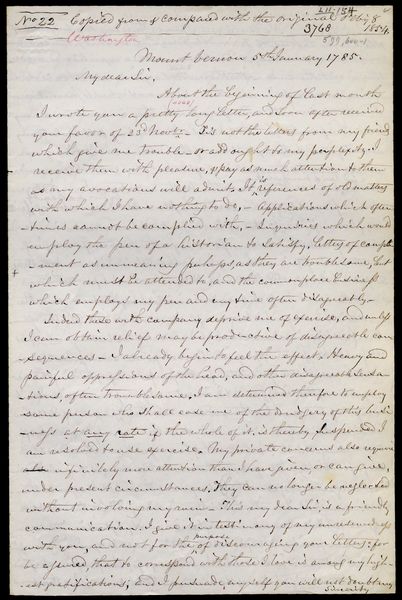 No 22 Copied from & compared with the original Feby 8
1854
LII-154
3768
599,600-1
Washington
Mount Vernon 5th January 1785.
My dear Sir,
About the begining of last month
I wrote you a pretty long letter, and soon after received
your favor of 23d Novr.- It is not the letters from my friends
which give me trouble - or add ought to my perplexity. I
receive them with pleasure, & pay as much attention to them
as my avocations will admit. It is references of old matters
with which I have nothing to do, - Applications which often-
times cannot be complied with, - Inquiries which would
employ the pen of a historian to satisfy, Letters of compli-
-ment as unmeaning perhaps as they are troublesome, but
which must be attended to, and the commonplace business
which employs my pen and my time often disagreeably.-
Indeed these with company deprive me of exercise, and unless
I can obtain relief may be productive of disagreeable con
sequences - I already begin to feel the effect. Heavy and
painful oppressions of the head, and other disagreeable sensa-
-tions, often trouble me. I am determined therefore to employ
some person who shall ease me of the drudgery of this busi-
ness at any rate if the whole of it is thereby suspended I
am resolved to use exercise. My private concerns also require
infinitely more attention than I have given, or can give,
under present circumstances. They can no longer be neglected
without involving my ruin - This my dear Sir, is a friendly
communication. I give it in testimony of my unreservedness
with you, and not for the purpose of discouraging your letters; for
be assured that to correspond with those I love is among my high-
-est gratifications, and I persuade myself you will not doubt my
Sincerity